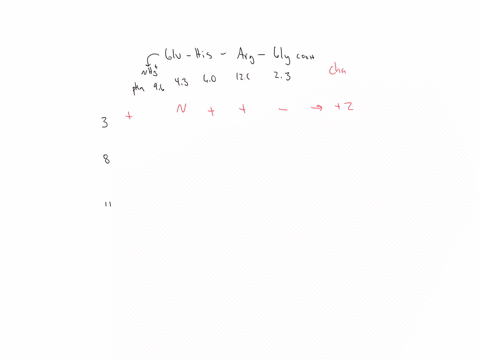 Glu - His - Arg - Gly COOH
NH3+
pka 9.6 4.3 6.0 12.5 2.3 cha
3 + N + + - → +2
8
11